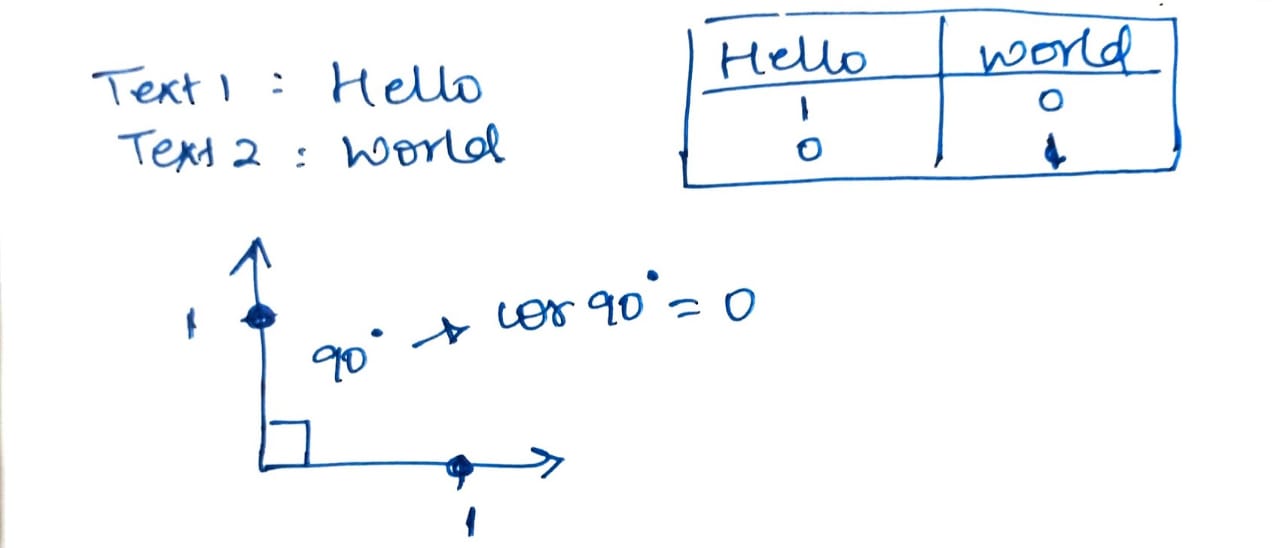 Text 1 : Hello
Text 2 : World
Hello World
1 0
0 1
1
90° → cos 90° = 0
1